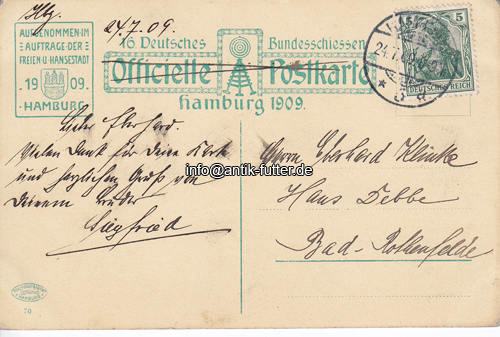 Hbg. 24.7.09.
AUFGENOMMEN·IM
AUFTRAGE·DER
FREIEN U·HANSESTADT
19 09.
·HAMBURG·
16. Deutsches Bundesschiessen
Officielle Postkarte
Hamburg 1909.
5
DEUTSCHES REICH
24.7.
Lieber Eberhard.
Vielen Dank für Deine Karte
und herzlichen Gruß von
Deinem Bruder
Siegfried
Herrn Eberhard Klinke
Haus Debbe
Bad-Rothenfelde
info@antik-futter.de
HAMBURG
70